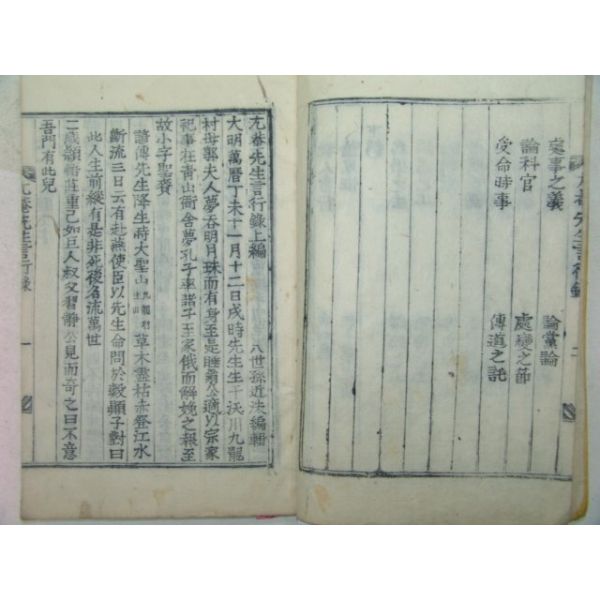 尤菴先生言行錄
二
處事之義
論黨論
論科官
處變之節
受命時事
傳道之託
尤菴先生言行錄上編
八世孫近洙編輯
大明萬曆丁未十一月十二日戌時先生生于沃川九龍
村母郭夫人夢呑明月珠而有身至是睡翁公適以宗家
祀事在青山衙舍夢孔子率諸子至家俄而解娩之報至
故小字聖賚
諺傳先生降生時大聖山
草木盡枯赤登江水
斷流三日云有赴燕使臣以先生命問於穀顯子對曰
此人生前縱有是非死後名流萬世
二歲頭骼莊重已如巨人叔父習靜公見而奇之曰不意
吾門有此兒
尤菴先生言行錄
一